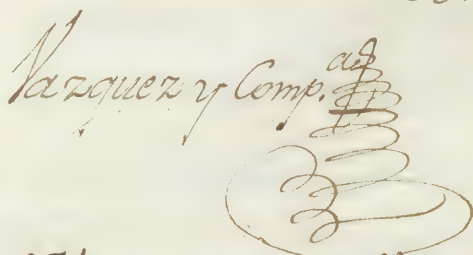 Vazquez y Comp.ª